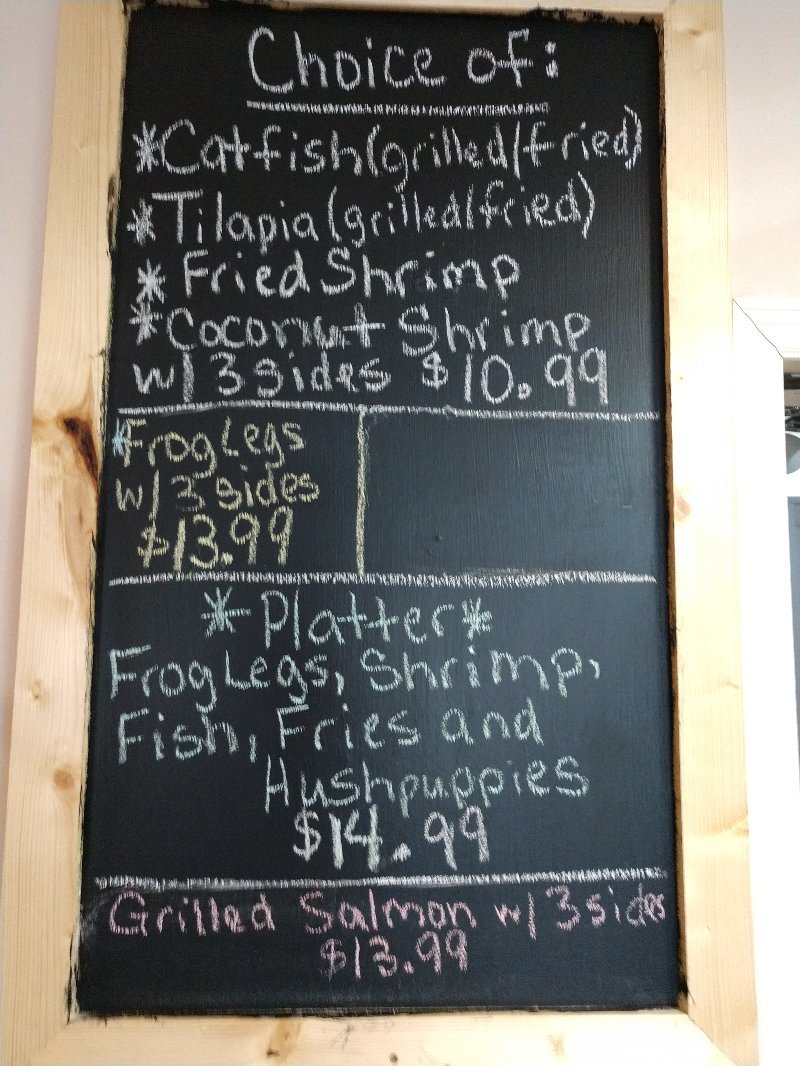 Choice of:
*Catfish(grilled/fried)
*Tilapia(grilled/fried)
* Fried Shrimp
*Coconut Shrimp
w/ 3 sides $10.99
*Frog Legs
w/ 3 sides
$13.99
*Platter*
Frog Legs, Shrimp,
Fish, Fries and
Hushpuppies
$14.99
Grilled Salmon w/ 3 sides
$13.99